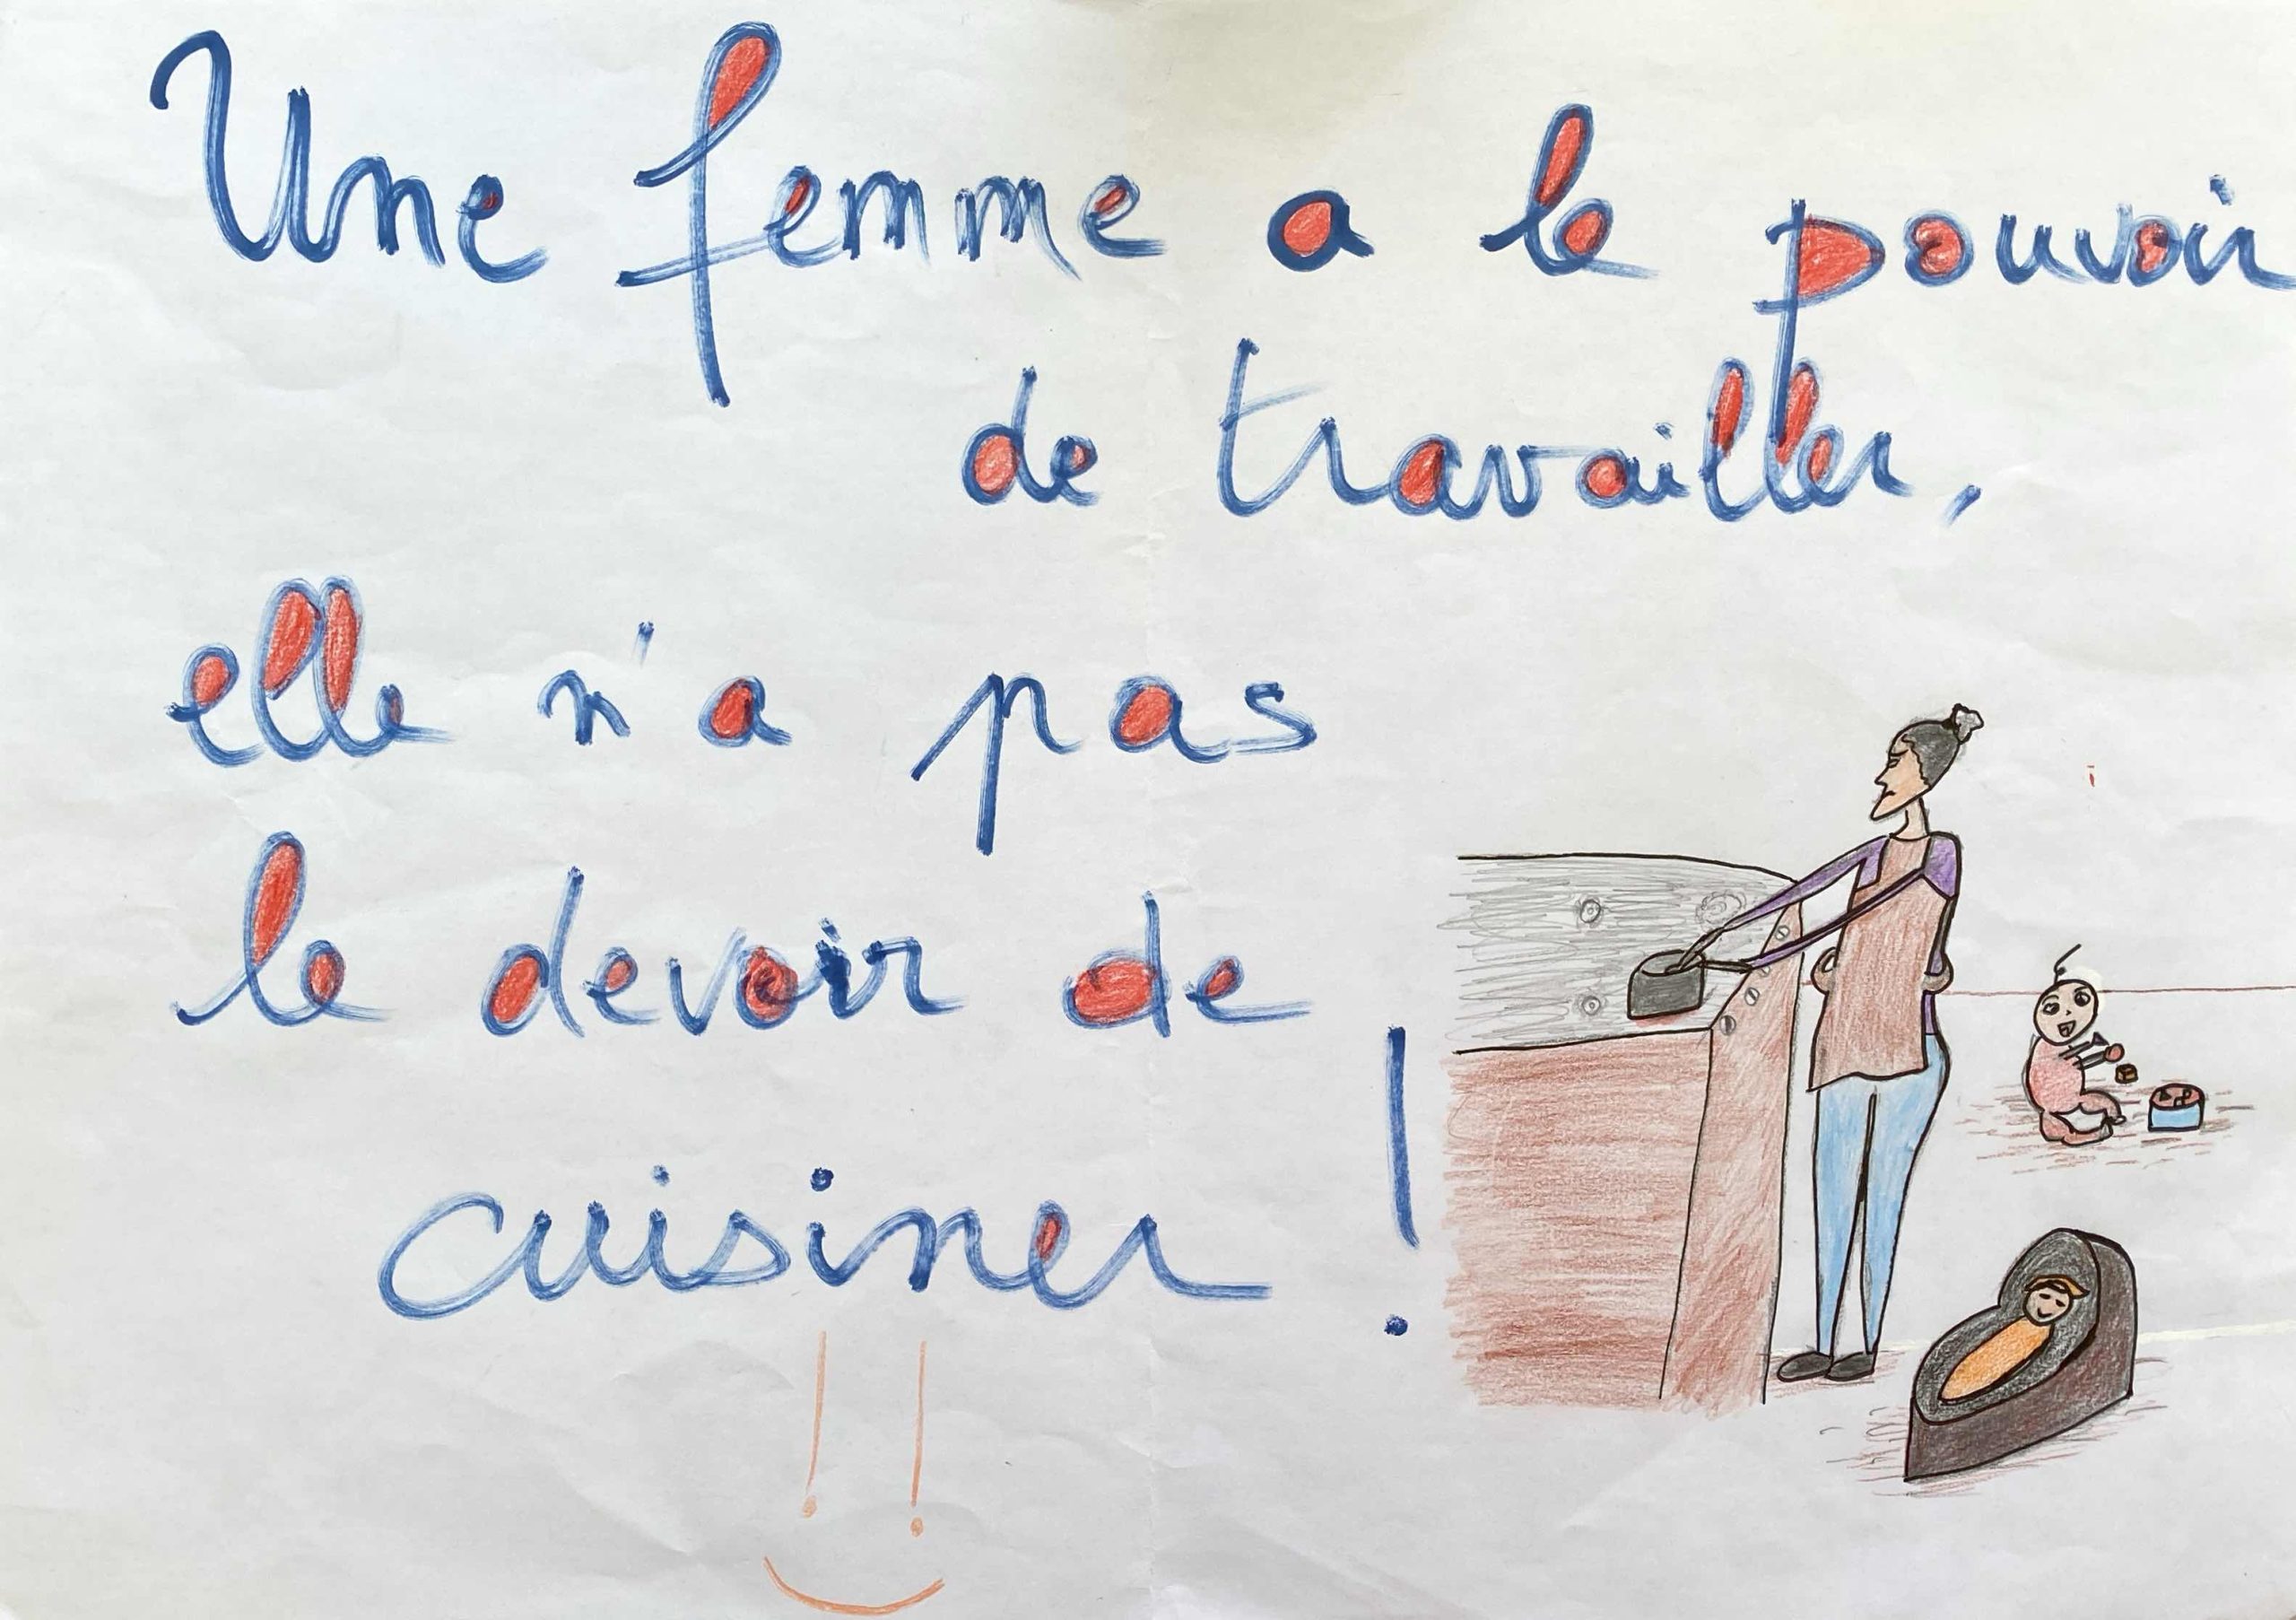 Une femme a le pouvoir
de travailler,
elle n'a pas
le devoir de
cuisiner !
!!